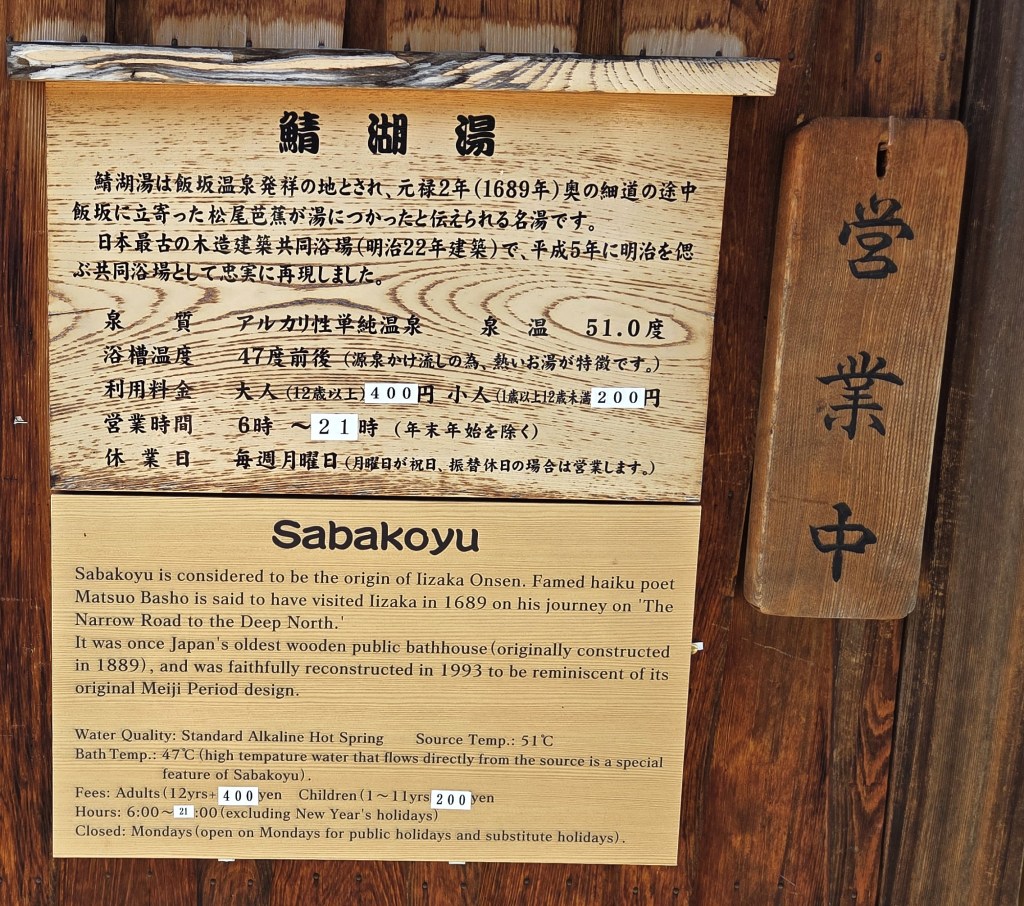 鯖湖湯
鯖湖湯は飯坂温泉発祥の地とされ、元禄2年(1689年)奥の細道の途中
飯坂に立寄った松尾芭蕉が湯につかったと伝えられる名湯です。
日本最古の木造建築共同浴場(明治22年建築)で、平成5年に明治を偲
ぶ共同浴場として忠実に再現しました。
泉質 アルカリ性単純温泉 泉温 51.0度
浴槽温度 47度前後(源泉かけ流しの為、熱いお湯が特徴です。)
利用料金 大人(12歳以上)400円 小人(1歳以上12歳未満200円
営業時間 6時~21時(年末年始を除く)
休業日 毎週月曜日(月曜日が祝日、振替休日の場合は営業します。)
Sabakoyu
Sabakoyu is considered to be the origin of Iizaka Onsen. Famed haiku poet
Matsuo Basho is said to have visited Iizaka in 1689 on his journey on 'The
Narrow Road to the Deep North.'
It was once Japan's oldest wooden public bathhouse(originally constructed
in 1889), and was faithfully reconstructed in 1993 to be reminiscent of its
original Meiji Period design.
Water Quality: Standard Alkaline Hot Spring Source Temp.: 51℃
Bath Temp.: 47℃(high tempature water that flows directly from the source is a special
feature of Sabakoyu).
Fees: Adults(12yrs+ 400yen Children(1~11yrs 200yen
Hours: 6:00~21:00(excluding New Year's holidays)
Closed: Mondays(open on Mondays for public holidays and substitute holidays).
営業中